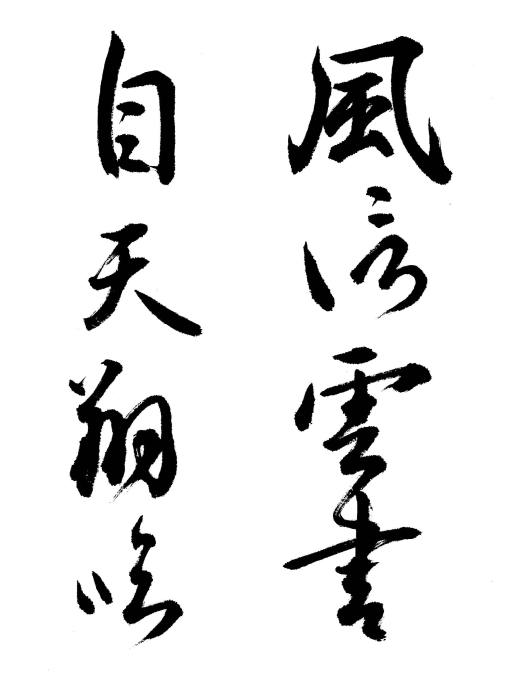 風信雲書
自天翔臨